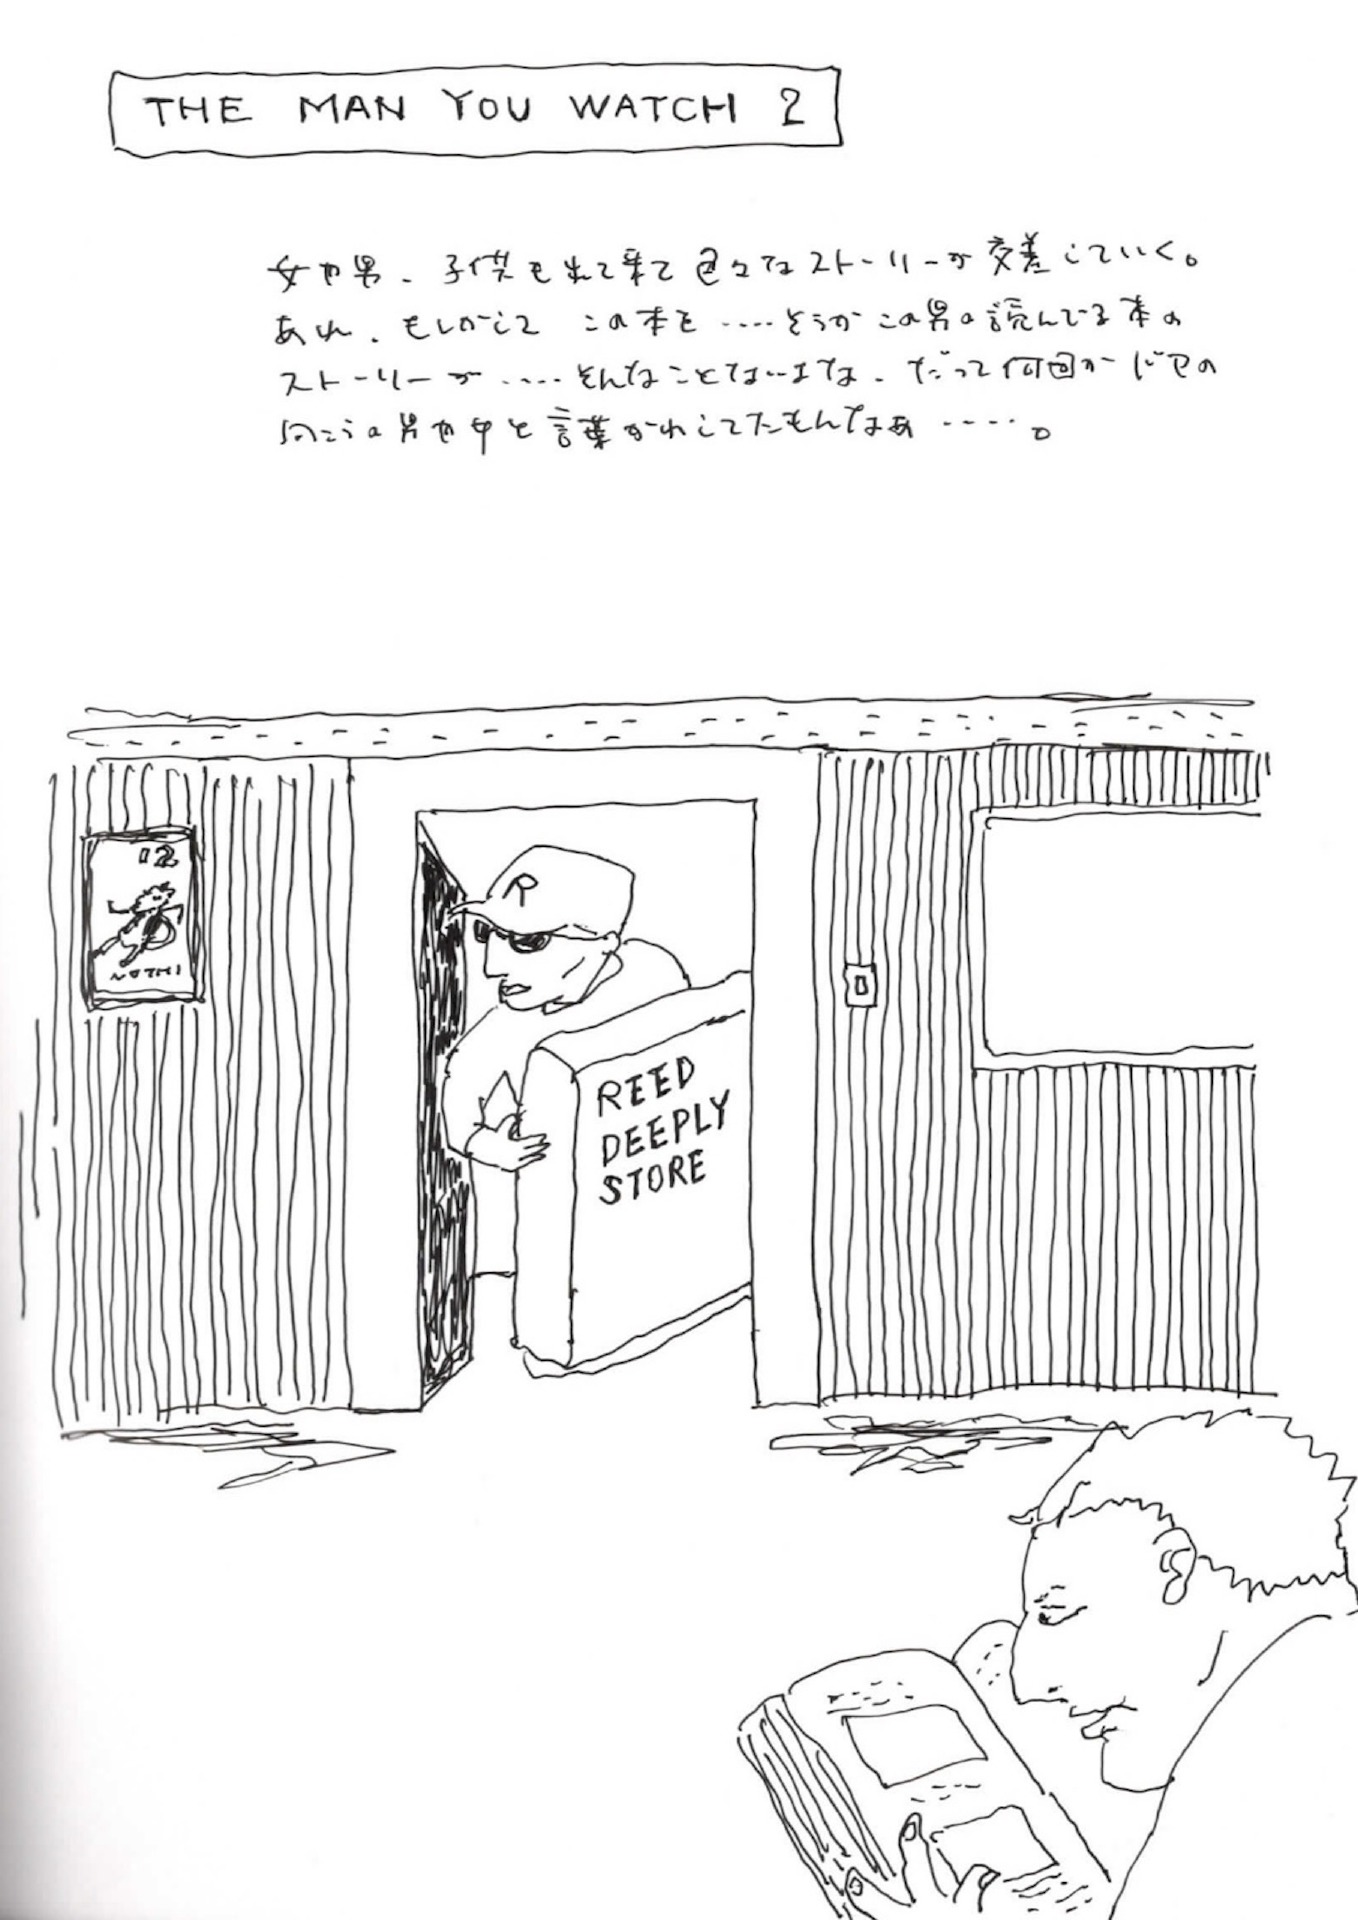 THE MAN YOU WATCH 2
女や男、子供も出て来て色々なストーリーが交差していく。
あれ、もしかして この本を ‥‥そうかこの男の読んでる本の
ストーリーが ‥‥そんなことないよな、だって何回かドアの
向こうの男や女と言葉かわしてたもんなぁ ‥‥。
12
NOTHI
R
REED
DEEPLY
STORE